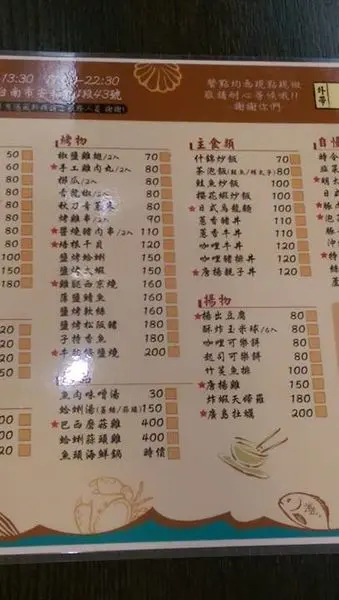 13:30
-22:30
餐點均為現點現做
敬請耐心等候哦!!
謝謝你們
外帶
台南市安和路1段43號
烤物
椒鹽雞翅/2入 70
★手工雞肉丸/2入 80
椰瓜/2入 80
青龍椒/2入 80
秋刀魚 80
烤雞串/2入 90
★醬燒豬肉串/2入 110
★培根干貝 120
鹽烤蛤蜊 150
鹽烤大蝦 150
★雞腿西京燒 160
薄鹽鯖魚 160
鹽烤軟絲 160
鹽烤松阪豬 180
子持香魚 180
★牛 鹽燒 200
魚肉味噌湯 30
蛤蜊湯 150
★巴西蘑菇雞 400
蛤蜊蒜頭雞 400
魚頭海鮮鍋 時價
主食類
什錦炒飯 70
茶泡飯(鮭魚/明太子) 80
鮭魚炒飯 80
櫻花蝦炒飯 80
★日式烏龍麵 100
蔥香豬丼 110
蔥香牛丼 110
咖哩牛丼 120
咖哩豬排丼 120
★唐揚親子丼 120
揚物
★揚出豆腐 80
酥炸玉米球/6入 80
咖哩可樂餅 80
起司可樂餅 80
竹筴魚排 80
★唐揚雞 150
炸蝦天婦羅 180
★廣島牡蠣 200
自慢
時令
韭菜
★明太